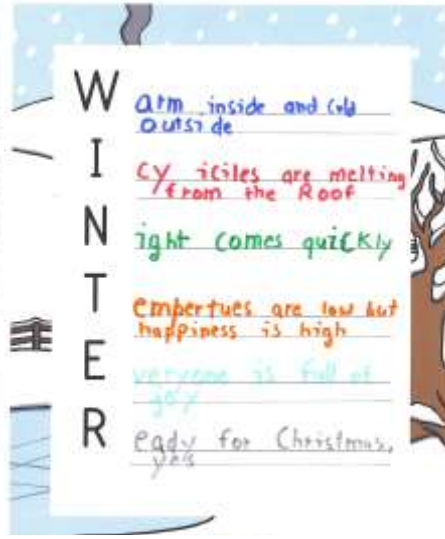 W arm inside and cold
outside
I cy iciles are melting
from the Roof
N ight comes quickly
T empertues are low but
happiness is high
E veryone is full of
joy
R eady for Christmas,
yes